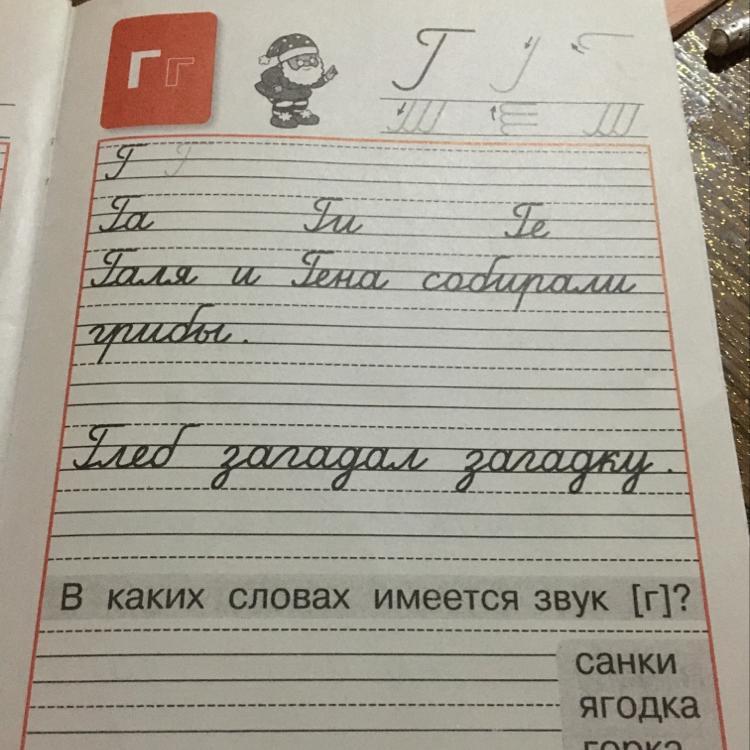 Г г
Г
Г Г
Га Ги Ге
Галя и Гена собирали
грибы.
Глеб загадал загадку.
В каких словах имеется звук [г]?
санки
ягодка
горка